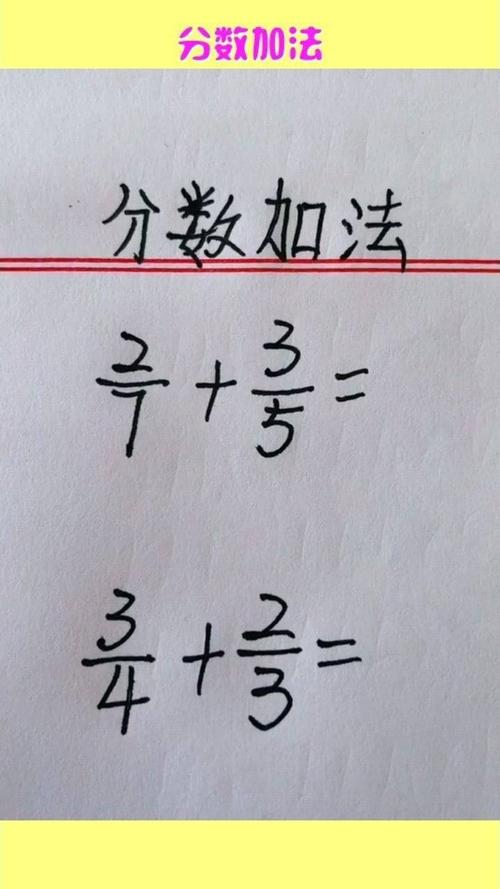 分数加法
分数加法
2/7 + 3/5 =
3/4 + 2/3 =